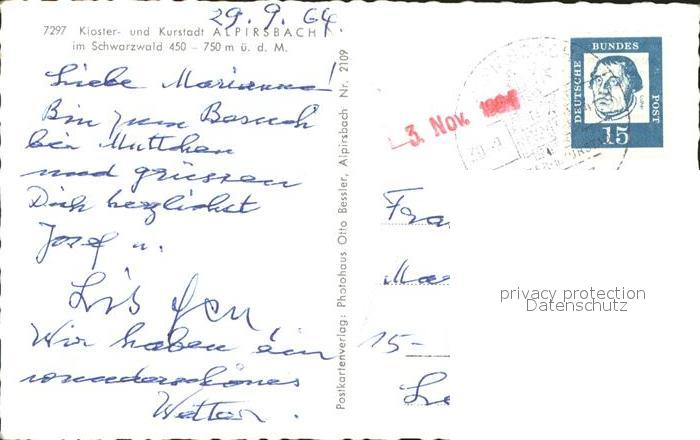 29.9.64.
7297 Kloster- und Kurstadt ALPIRSBACH
im Schwarzwald 450 – 750 m ü. d. M.
Liebe Marianne!
Bin zum Besuch
bei Muttchen
und grüssen
Dich herzlichst
Josef u.
Wir haben ein
wunderschönes
Wetter.
Postkartenverlag: Photohaus Otto Bessler, Alpirsbach Nr. 2109
3. Nov.
DEUTSCHE
BUNDES
POST
15
Frau
15-
privacy protection
Datenschutz